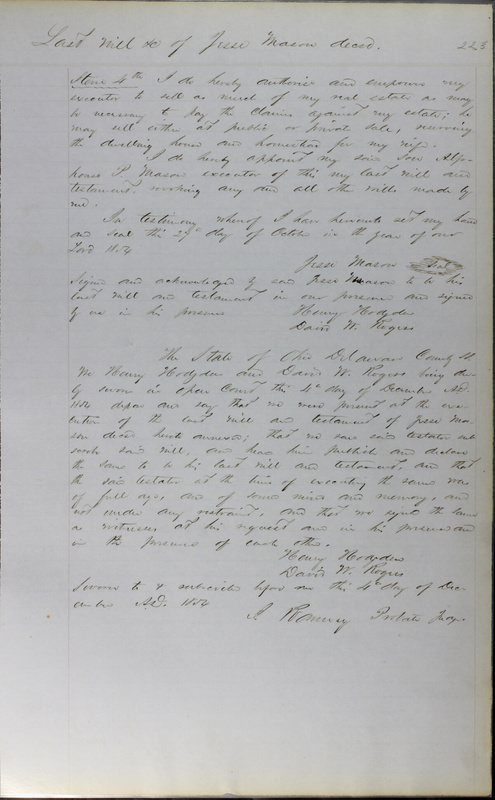 Last will &c of Jesse Mason decd. 223
Item 4th I do hereby authorise and empower my
executor to sell as much of my real estate as may
be necessary to pay the claims against my estate; he
may sell either at public or private sale, reserving
the dwelling house and homestead for my wife.
I do hereby appoint my said son Alfo-
house P. Mason executor of this my last will and
testament, revoking any and all other wills made by
me.
In testimony whereof I have hereunto set my hand
and seal this 29th day of October in the year of our
Lord 1854
Jesse Mason seal
Signed and acknowledged by said Jesse Mason to be his
last will and testament in our presence and signed
by us in his presence
Henry Hodgden
David W. Rogers
The State of Ohio Delaware County SS.
We Henry Hodgden and David W. Rogers being du-
ly sworn in open Court this 4th day of December AD.
1854 depose and say that we were present at the exe-
cution of the last will and testament of Jesse Ma-
son decd hereto annexed; that we saw said testator sub
scribe said will, and heard him publish and declare
the same to be his last will and testament, and that
the said testator at the time of executing the same was
of full age, and of sound mind and memory, and
not under any restraint, and that we signed the same
as witnesses at his request and in his presence and
in the presence of each other.
Henry Hodgden
David W. Rogers
Sworn to & subscribed before me this 4th day of Dec-
ember AD. 1854
Romney Probate Judge